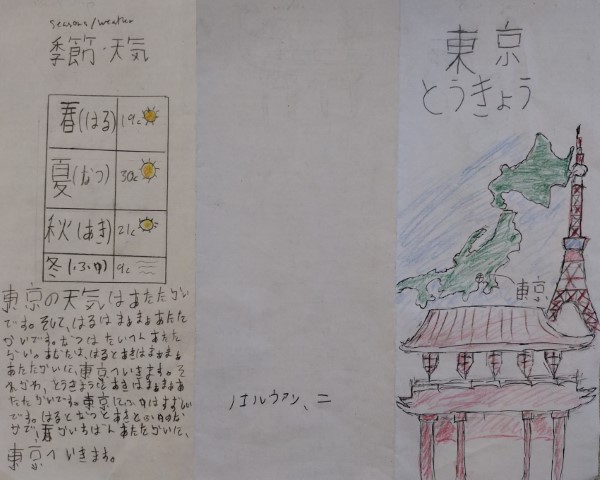 seasons/weather
季節・天気
春(はる) 19c
夏(なつ) 30c
秋(あき) 21c
冬(ふゆ) 9c
東京の天気はあたたかい
です。そして、はるはまあまああたた
かいです。なつはたいへんあたた
かい。はるとあきはまあまあ
あたたかいに、東京へいきます。そ
れから、とうきょうのあきはまあまああ
たたかいです。東京にふゆはすずしい
です。はるとなつとあきとふゆのな
かで、春がいちばんあたたかいに、
東京へいきます。
ノエルヴァン、ニ
東京
とうきょう
東京